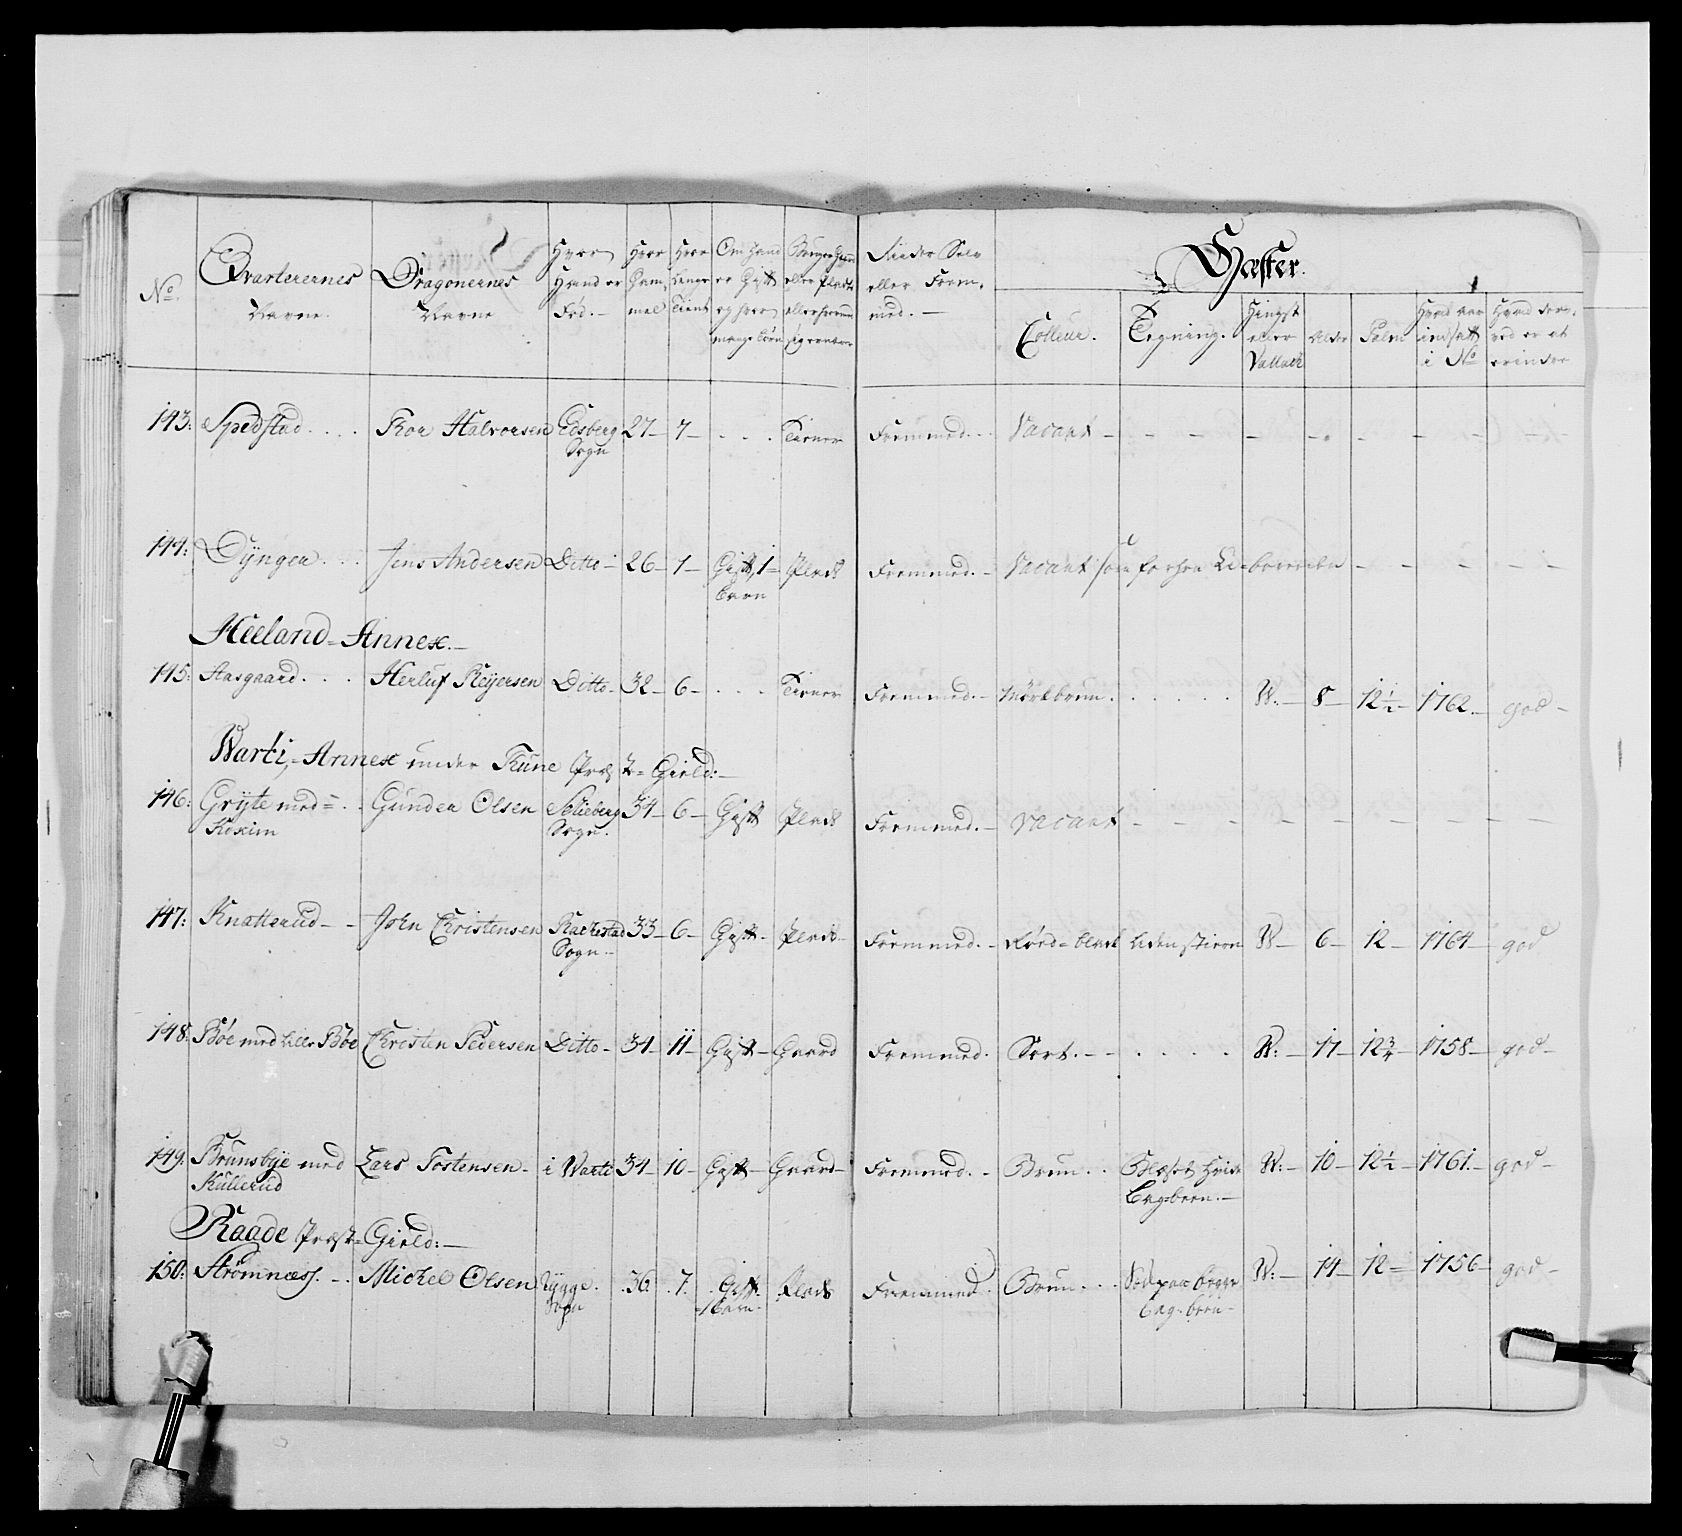 No. Qvarterernes Navne. Dragonernes Navne Hvor Hand er Fød. Hvor Gammel Hvor Længe Tient Om Hand er Gift og hvor mange Børn
eller Frem-med.
Hæster.
Colleur. Tegning. Hingst eller Vallack Alder Palm Hvad aar indsatt i No Hvad derved er at erindre
143: Spedstad Thor Halvorsen Edsberg Sogn 27 7 Tiener Fremmed Vacant
144: Dÿngen Jens Andersen Ditto 26 1 Gift, 1 barn Plads Fremmed Vacant
Heeland-Annex.
145: Aasgaard Herluf Reÿersen Ditto 32 6 Tiener Fremmed Mörkbrun W: 8 12½ 1762 god
Warti, Annex under Thune Præst-Gield:
146: Grÿte med Kixim Gunder Olsen Schieberg Sogn. 34 6 Gift Plads Fremmed Vacant
147: Knatterud John Christensen Rackestad Sogn 33 6 Gift Plads Fremmed Rød-black Liden stierne W 6 12 1764 god
148: Bøe med Lille Bøe Christen Pedersen Ditto 34 11 Gift Gaard Fremmed. Sort. W: 17 12¾ 1758 god
149: Brunsbÿe med Kullerud Lars Tostensen i Warti 34 10 Gift Gaard Fremmed Brun Bagbeen. W: 10 12½ 1761 god
Raade Præst-Gield:
150: Strømnæss. Michel Olsen Rÿgge Sogn 36 7. Gift 1 barn Plads Fremmed Brun begge Bag-been W: 14 12 1756 god